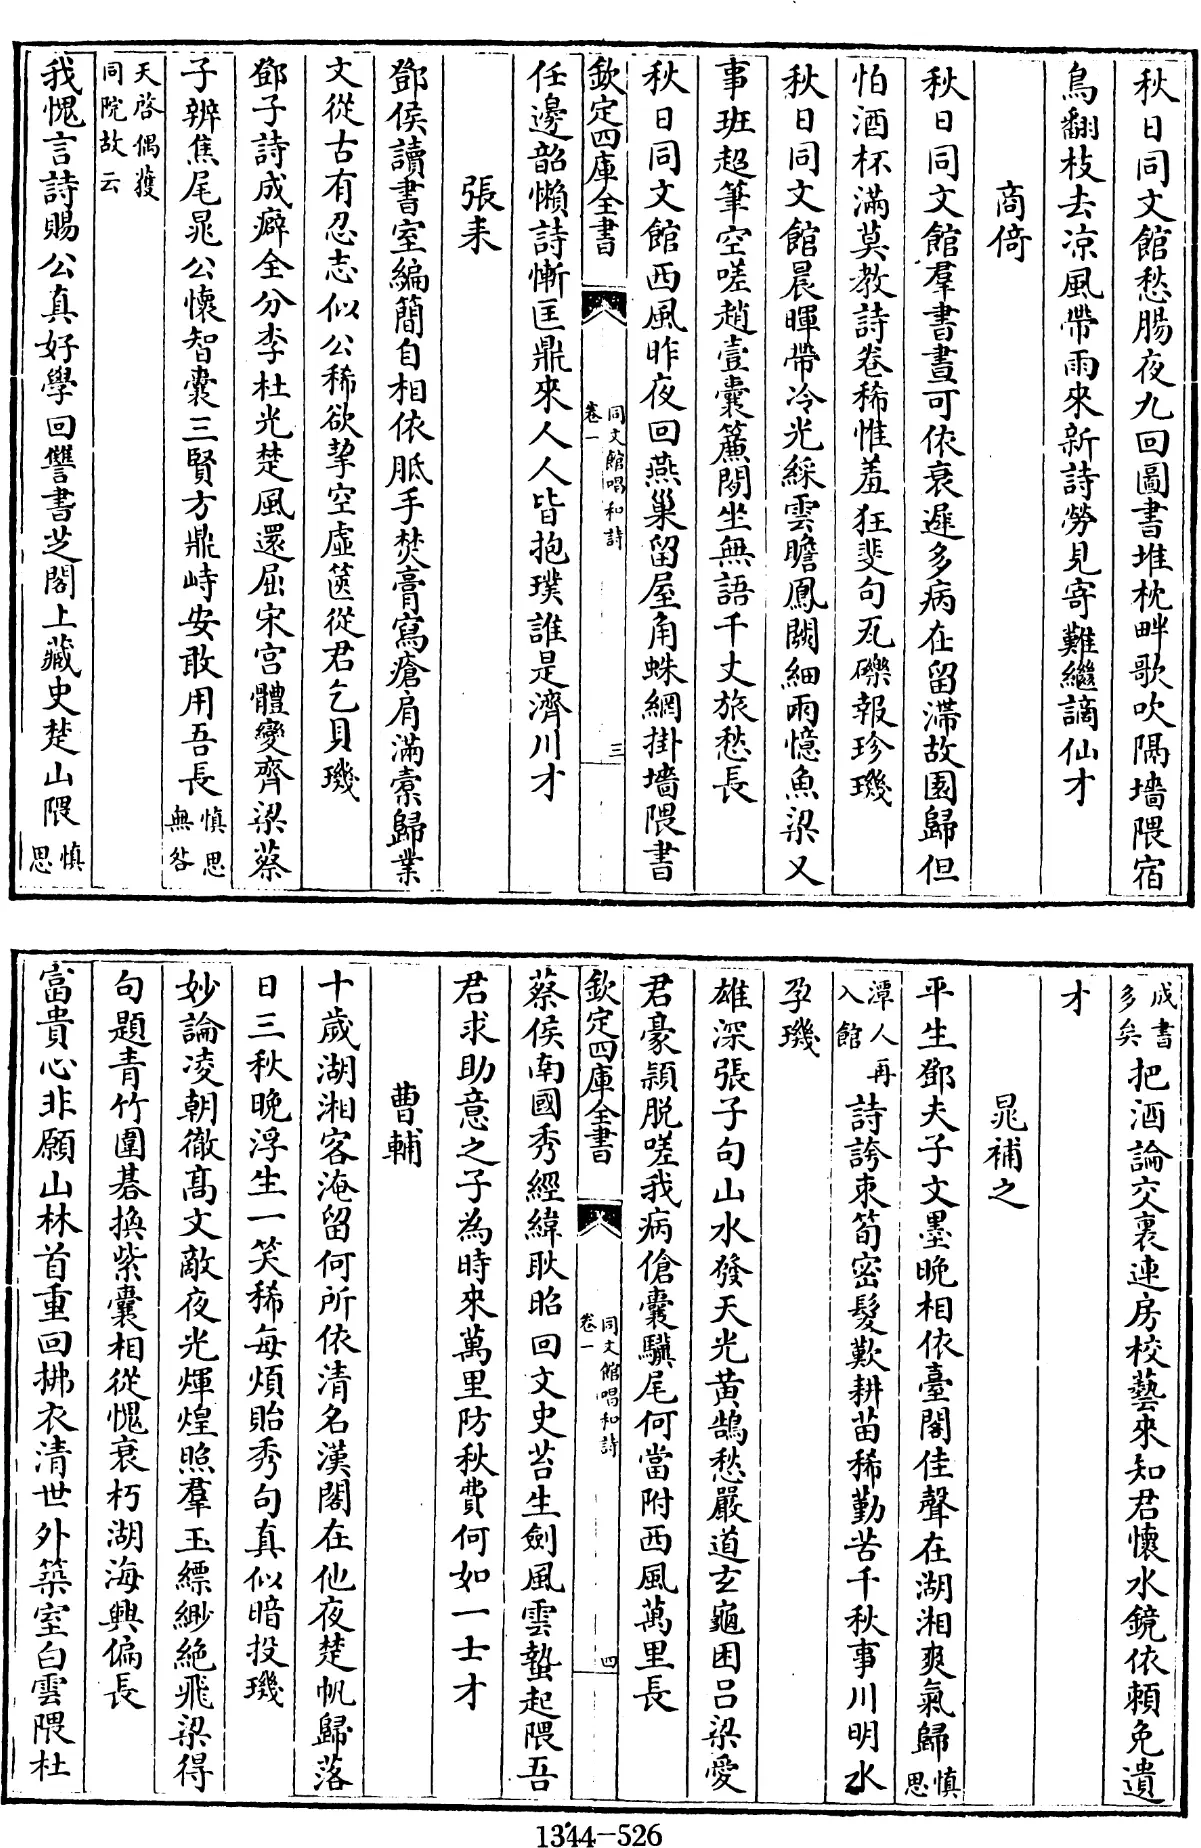 秋日同文館愁腸夜九回圖書堆枕畔歌吹隔墻隈宿
鳥翻枝去凉風帶雨來新詩勞見寄難繼謫仙才
商倚
秋日同文館羣書晝可依衰遲多病在留滯故園歸但
怕酒杯滿莫教詩卷稀惟羞狂斐句瓦礫報珍璣
秋日同文館晨暉帶冷光綵雲瞻鳳闕細雨憶魚梁又
事班超筆空嗟趙壹囊簾閒坐無語千丈旅愁長
秋日同文館西風昨夜回燕巢留屋角蛛網掛墻隈書
欽定四庫全書
同文館唱和詩
卷一
三
任邊韶懶詩慚匡鼎來人人皆抱璞誰是濟川才
張耒
鄧侯讀書室編簡自相依胝手焚膏寫瘡肩滿橐歸業
文從古有忍志似公稀欲挈空虛篋從君乞貝璣
鄧子詩成癖全分李杜光楚風還屈宋宫體變齊梁蔡
子辨焦尾晁公懷智囊三賢方鼎峙安敢用吾長慎思無咎
天啓偶獲同院故云
我愧言詩賜公真好學回讐書芝閣上藏史楚山隈慎思
成書多矣把酒論交裏連房校藝來知君懷水鏡依賴免遺
才
晁補之
平生鄧夫子文墨晚相依臺閣佳聲在湖湘爽氣歸慎思
潭人再入館詩誇束筍密髮歎耕苗稀勤苦千秋事川明水
孕璣
雄深張子句山水發天光黄鵠愁嚴道玄龜困吕梁愛
君豪穎脱嗟我病傖囊驥尾何當附西風萬里長
欽定四庫全書
同文館唱和詩
卷一
四
蔡侯南國秀經緯耿昭回文史苔生劍風雲蟄起隈吾
君求助意之子為時來萬里防秋費何如一士才
曹輔
十歲湖湘客淹留何所依清名漢閣在他夜楚帆歸落
日三秋晚浮生一笑稀每煩貽秀句真似暗投璣
妙論凌朝徹高文敵夜光煇煌照羣玉縹緲絶飛梁得
句題青竹圍棊換紫囊相從愧衰朽湖海興偏長
富貴心非願山林首重回拂衣清世外築室白雲隈杜
1344-526